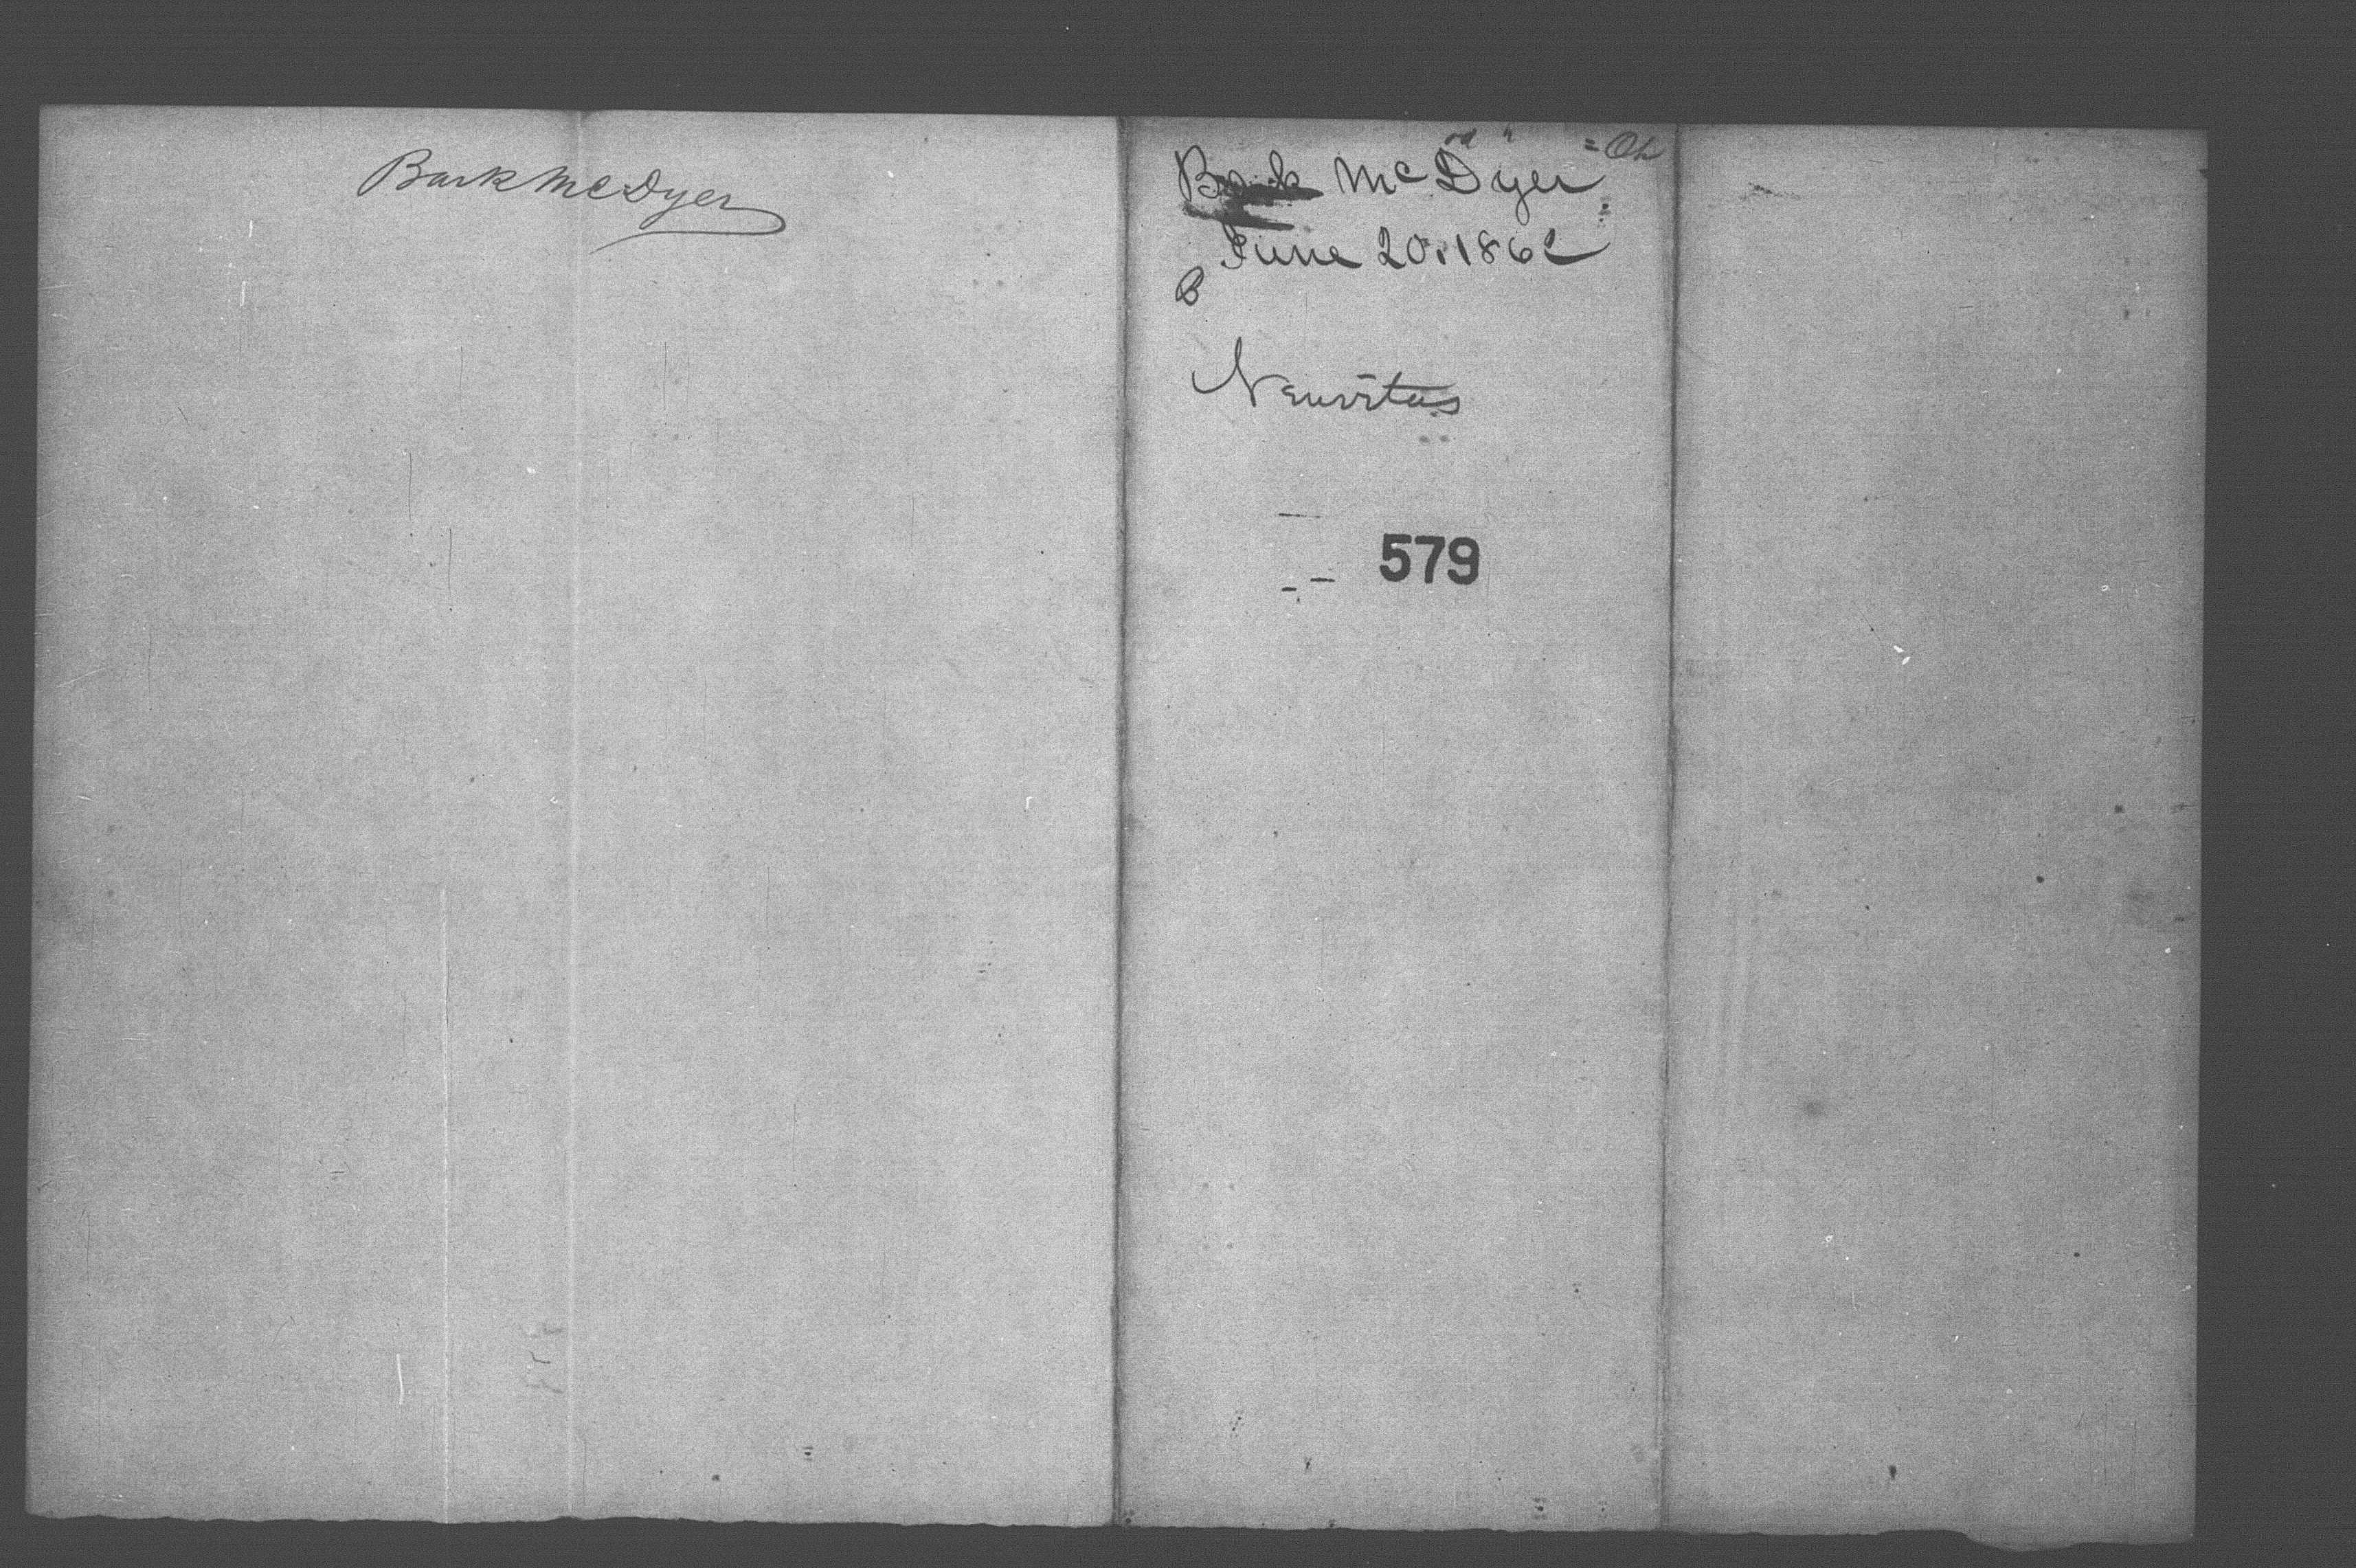 Bark McDyer
Bark McDyer
June 20. 1862
B
Neuvitas
579